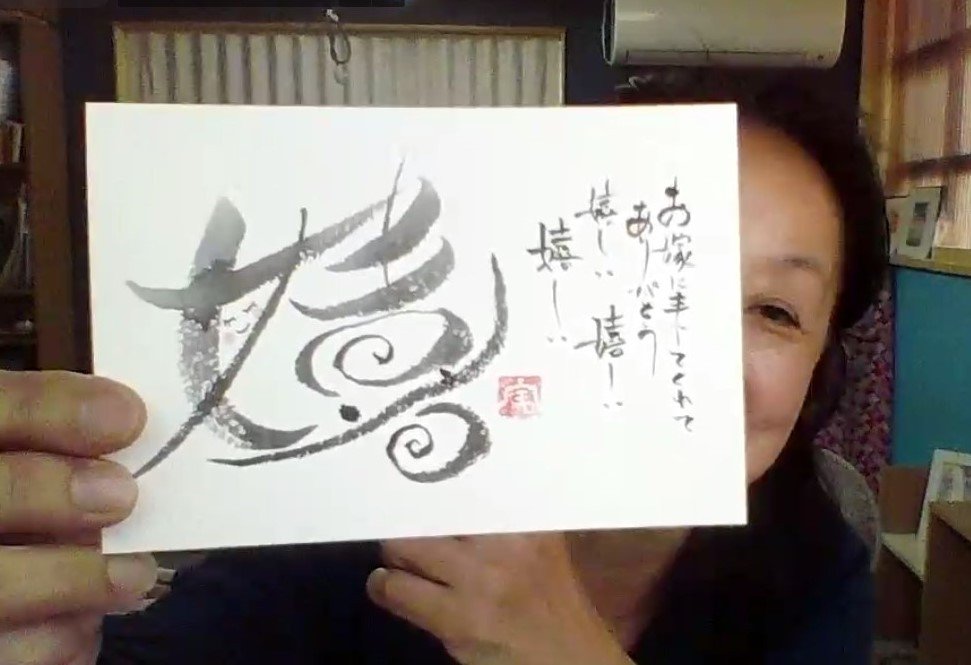 お嫁に来てくれて
ありがとう
嬉しい 嬉しい
嬉しい
嬉